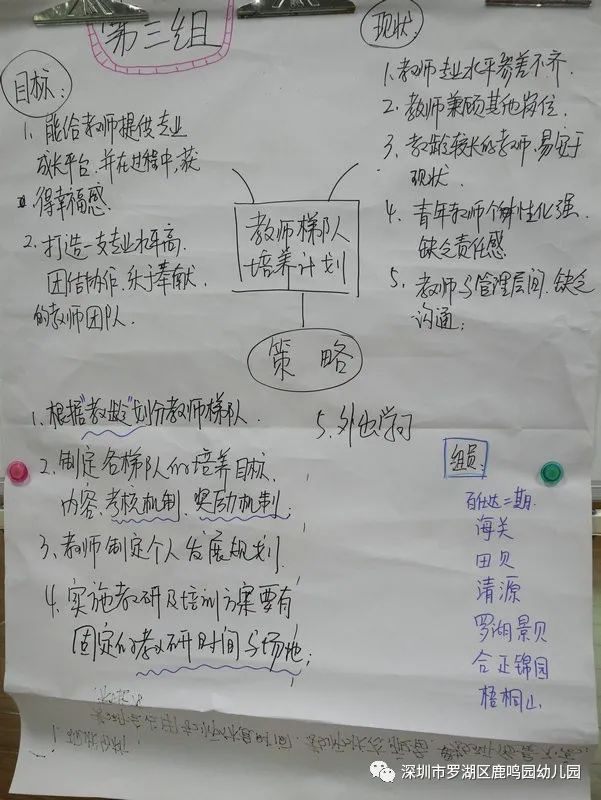 第三组
目标:
1. 能给教师提供专业
成长平台.并在过程中,获
得幸福感.
2. 打造一支专业水平高.
团结协作.乐于奉献.
的教师团队.
现状.
1. 教师专业水平参差不齐.
2. 教师兼顾其他岗位.
3. 教龄较长的教师.易安于
现状.
4. 青年教师个性化强.
缺乏责任感.
5. 教师与管理层间.缺乏
沟通;
教师梯队
培养计划
策略
1. 根据"教龄"划分教师梯队.
2. 制定各梯队的培养目标.
内容、考核机制、奖励机制;
3. 教师制定个人发展规划.
4. 实施教研及培训方案要有
固定的教研时间与场地;
5. 外出学习
组员:
百仕达二期.
海关
田贝
清源
罗湖景贝
合正锦园
梧桐山
深圳市罗湖区鹿鸣园幼儿园